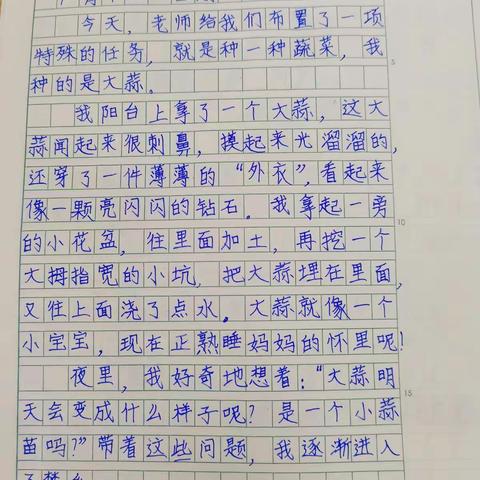 今天，老师给我们布置了一项
特殊的任务，就是种一种蔬菜，我
种的是大蒜。
我阳台上拿了一个大蒜，这大
蒜闻起来很刺鼻，摸起来光溜溜的，
还穿了一件薄薄的“外衣”，看起来
像一颗亮闪闪的钻石。我拿起一旁
的小花盆，往里面加土，再挖一个
大拇指宽的小坑，把大蒜埋在里面，
又往上面浇了点水。大蒜就像一个
小宝宝，现在正熟睡妈妈的怀里呢！
夜里，我好奇地想着：“大蒜明
天会变成什么样子呢？是一个小蒜
苗吗？”带着这些问题，我逐渐进入
5
10
15